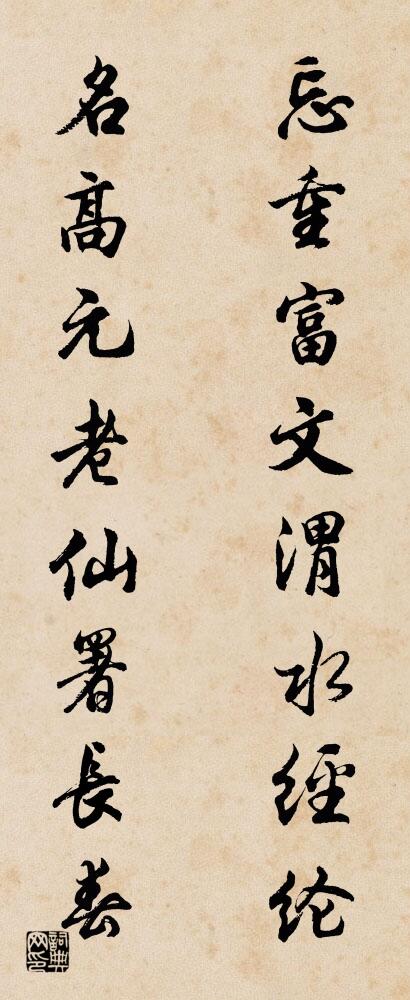 忘重富文渭水經纶
名高元老仙署長春
詞典
网印